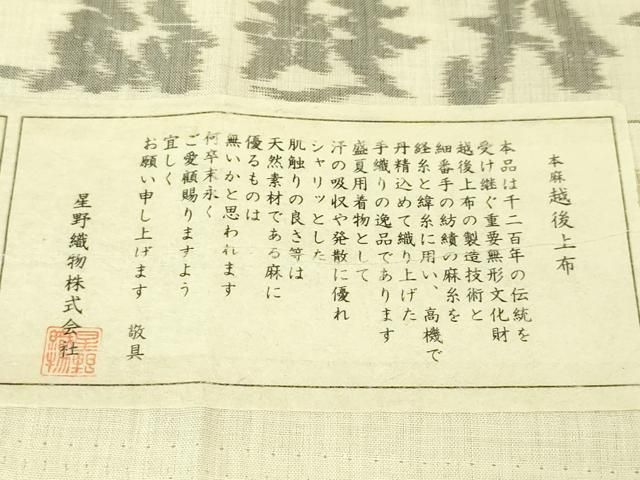 本麻越後上布
本品は千二百年の伝統を
受け継ぐ重要無形文化財
越後上布の製造技術と
細番手の紡績の麻糸を
経糸と緯糸に用い、高機で
丹精込めて織り上げた
手織りの逸品であります
盛夏用着物として
汗の吸収や発散に優れ
シャリッとした
肌触りの良さ等は
天然素材である麻に
優るものは
無いかと思われます
何卒末永く
ご愛顧賜りますよう
宜しく
お願い申し上げます
敬具
星野織物株式会社